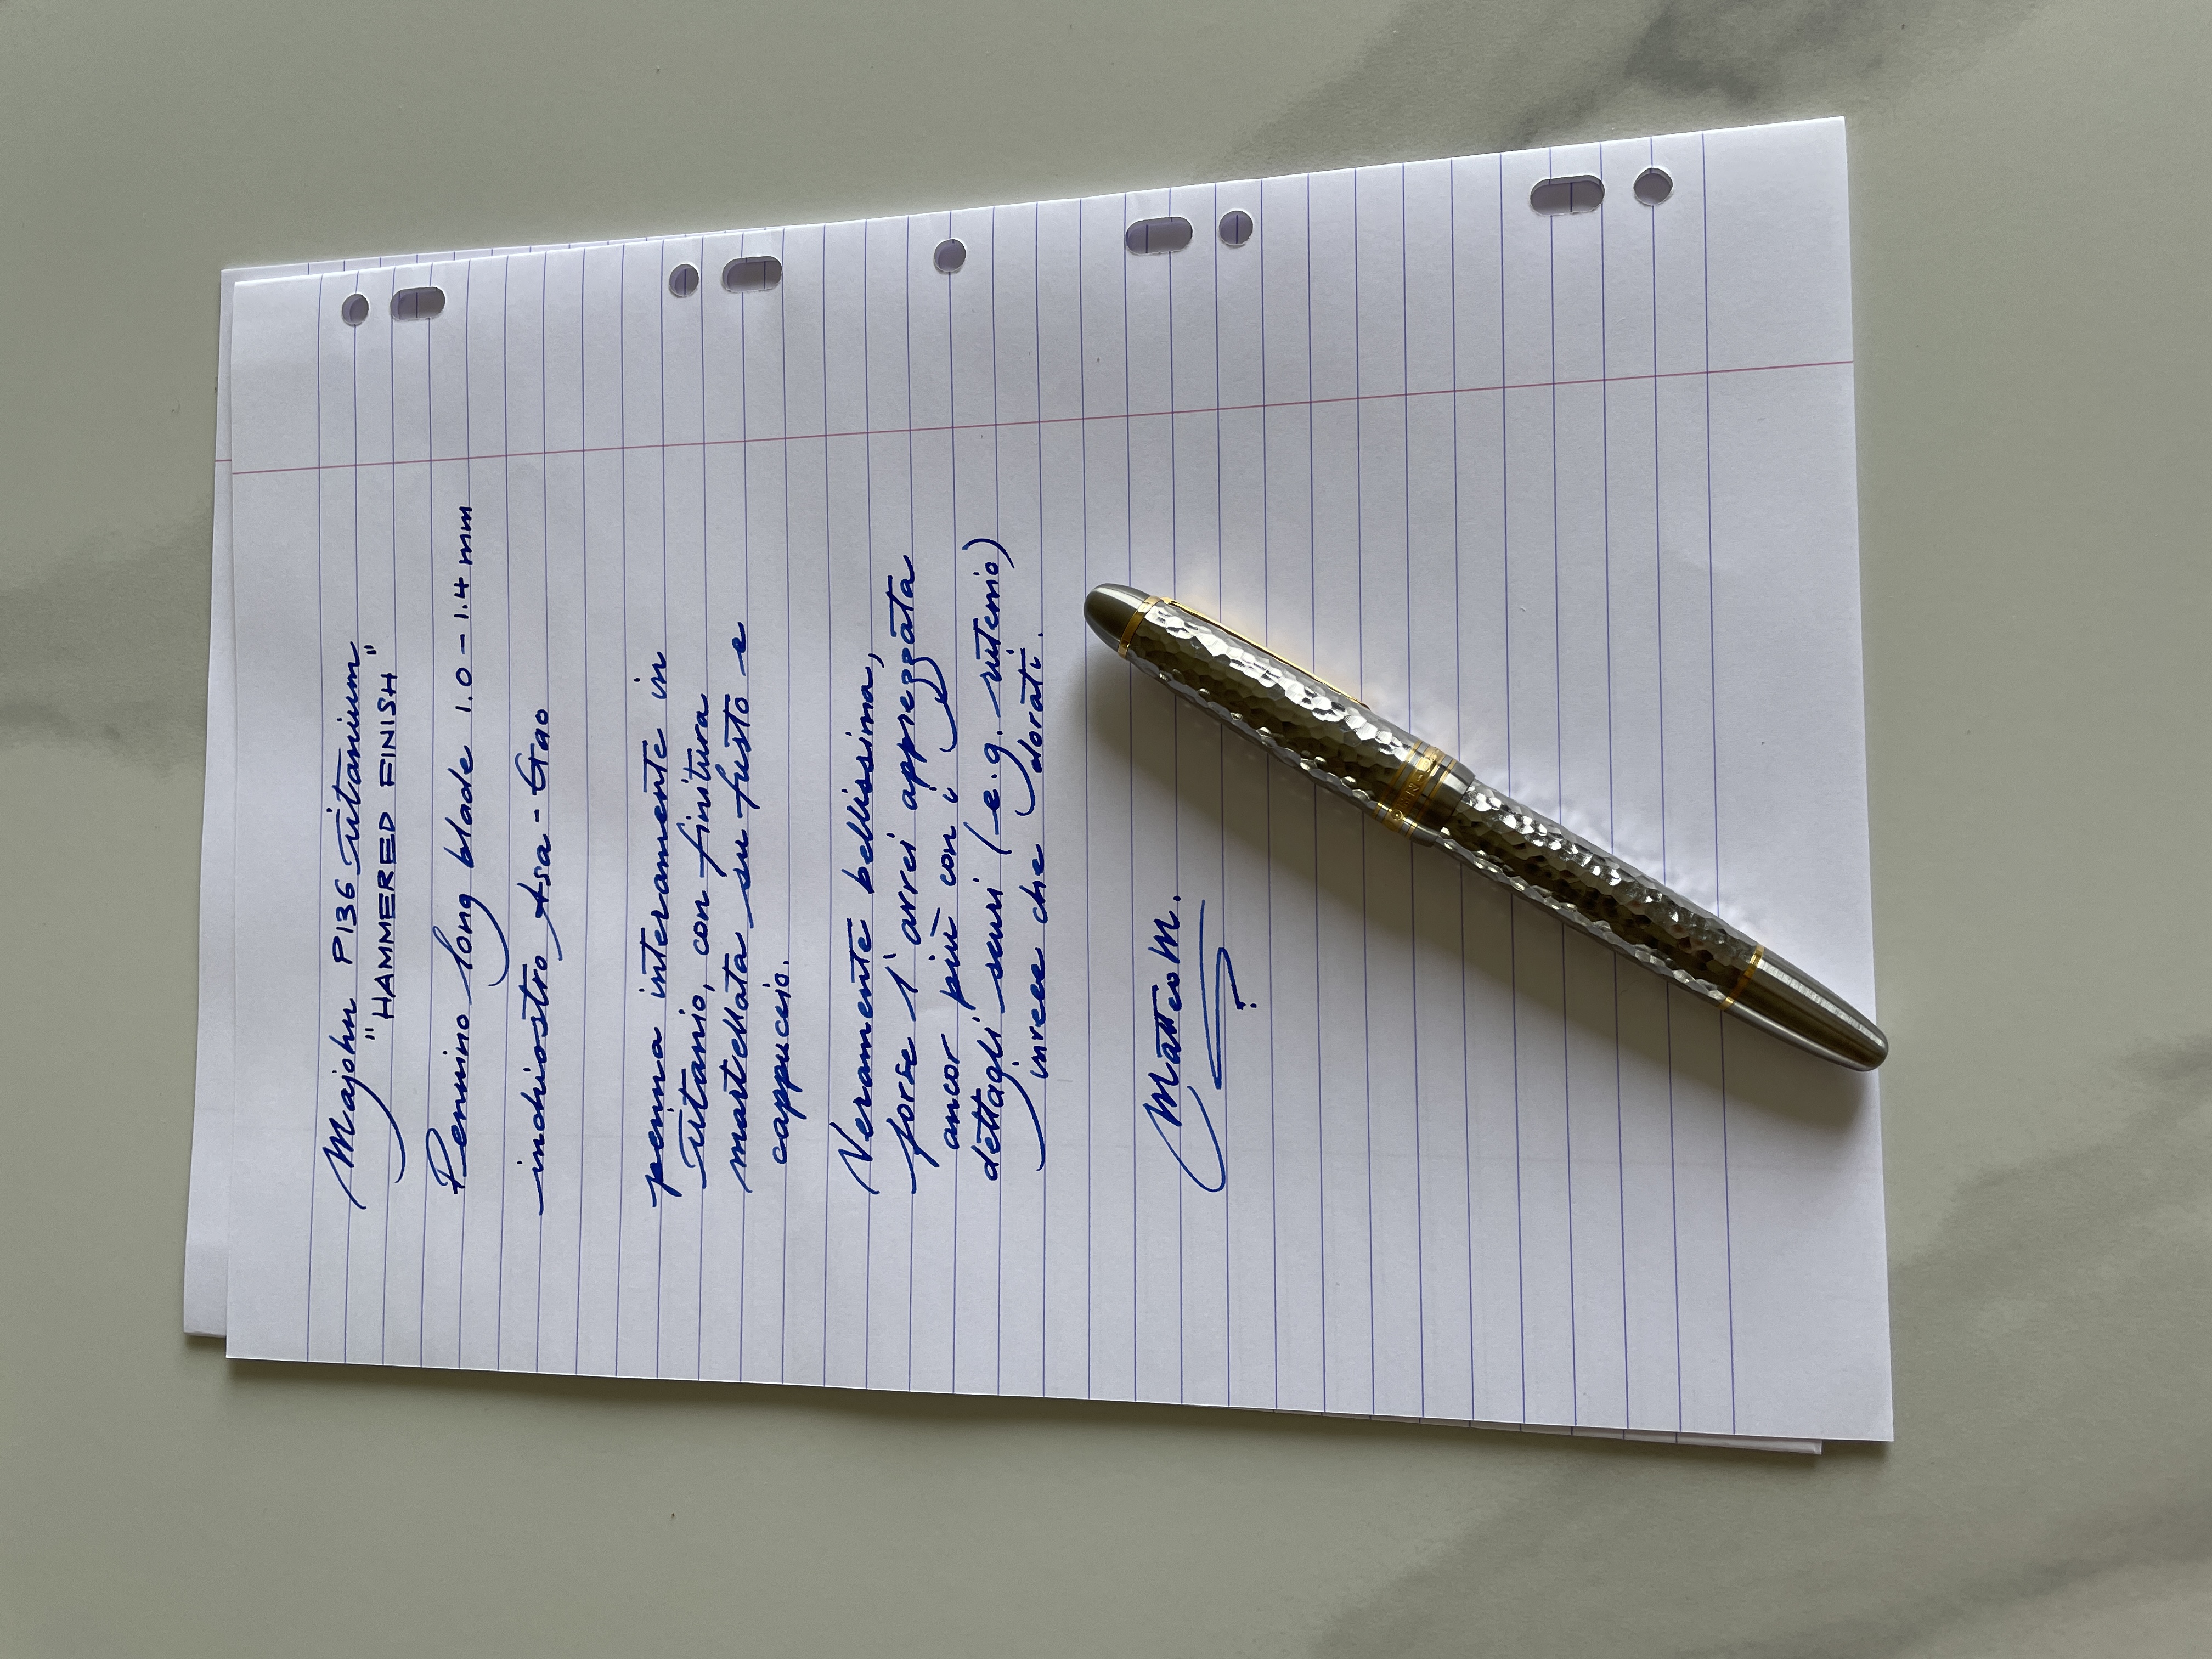 Majohn P136 titanium
"HAMMERED FINISH"
Pennino long blade 1.0-1.4 mm
inchiostro Asa-Gao
penna interamente in
titanio, con finitura
martellata su fusto e
cappuccio.
Veramente bellissima,
forse l'avrei apprezzata
ancor più con i
dettagli scuri (e.g. rutenio)
invece che dorati.
Matteo M.